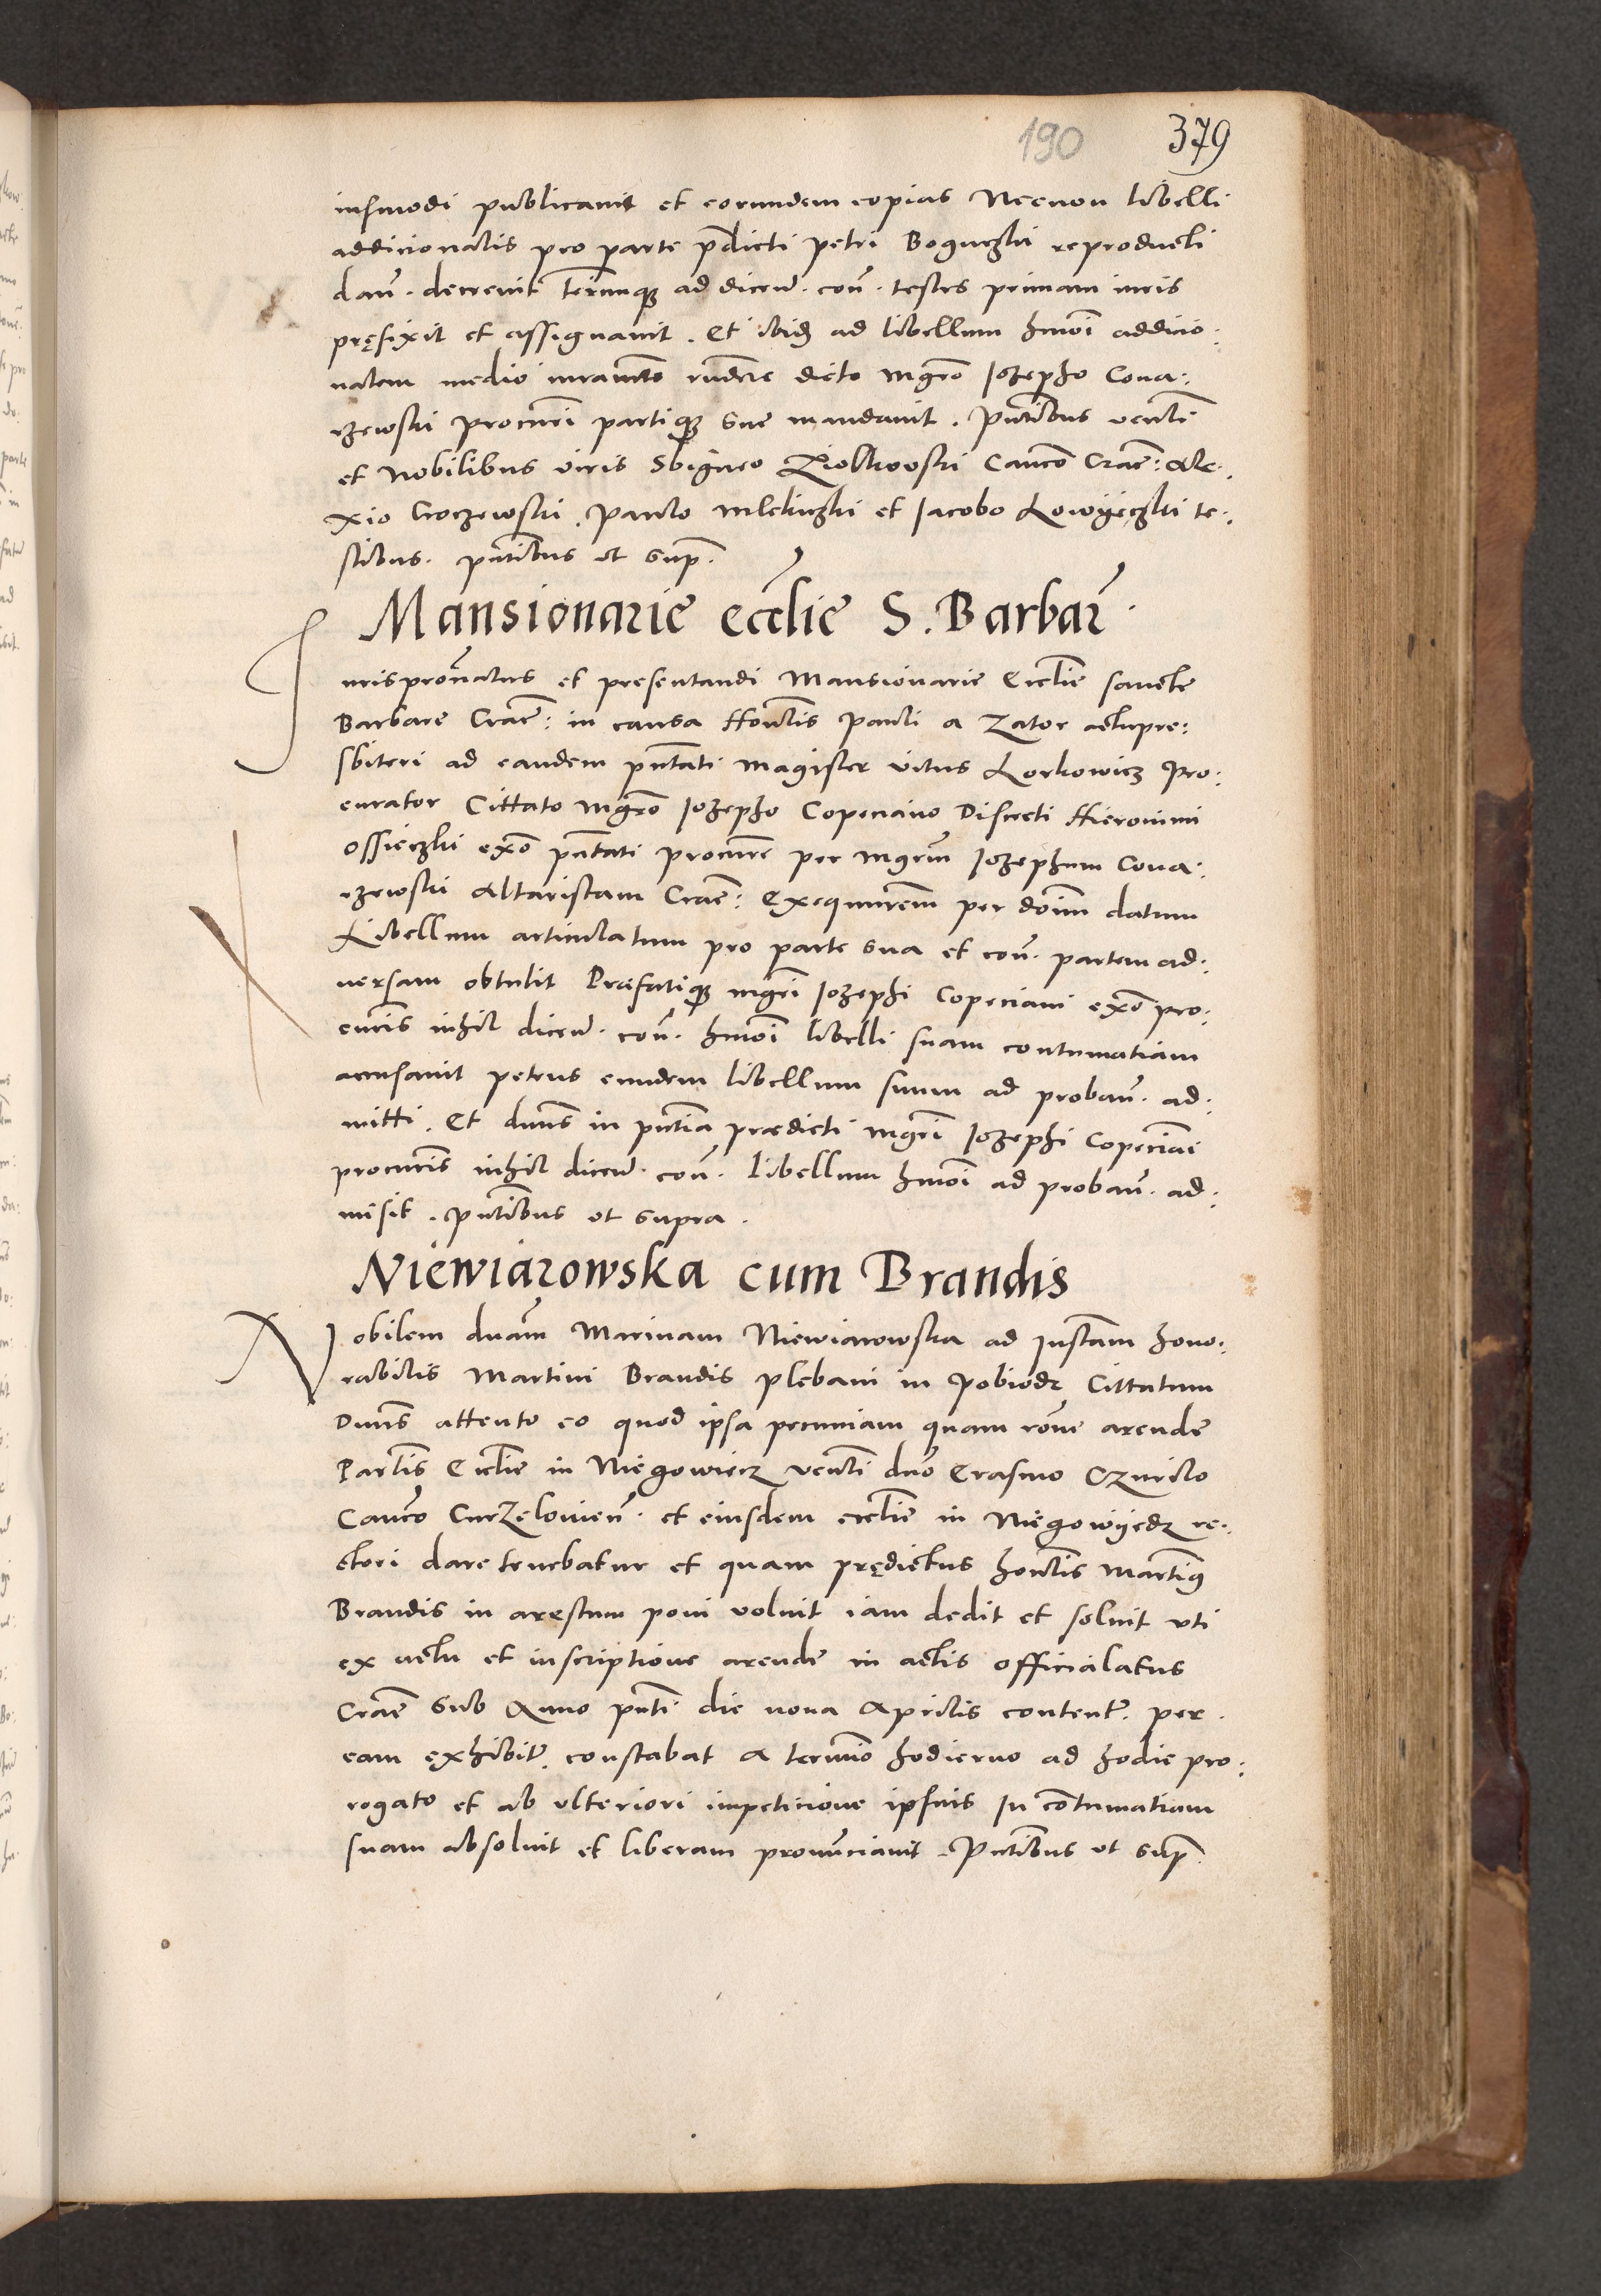 190 379
iusmodi publicavit et eorundem copias Necnon libelli
addicionalis pro parte p̄dicti petri Boguczki reproducti
dan̄. decrevit ter̄mumq̄ ad dicen̄d. con̄. testes primam iuris
pręfixit et assignavit. Et ibid̄ ad libellum hmōi addicio:
nalem medio iuramēto rn̄dere dicto mgr̄o Iozepho Cona:
rzewski procuri partiq̄ sue mandavit. Pn̄tibus ven̄li
et Nobilibus viris Sbigneo Ziolkowski Canco Crac̄: Ale:
xio Croczewski. Paulo mlekiczki et Iacobo Lowÿeczki te:
stibus. pn̄tibus ut sup̄.
Mansionarie ecclīe S. Barbar̄.
Iurispron̄atus et presentandi Mansionarie Ecclīe sancte
Barbare Crac̄: in causa Hon̄lis Pauli a Zator actupre:
sbiteri ad eandem pn̄tati magister vitus Lorkowicz Pro:
curator Cittato mgr̄o Iozepho Copeciano Discreti Hieronimi
Ossieczki exo pn̄tati procure per mgr̄m Iozephum Cona:
rzewski Altaristam Crac̄: Exequurem per don̄m datum
Libellum articulatum pro parte sua et con̄. partem ad:
versam obtulit Præfatiq̄ mgr̄i Iozephi Copeciani exo pro:
curis nihil dicen̄d. con̄. hmōi libelli suam contumatiam
accusavit petens eundem libellum suum ad proban̄. ad:
mitti. Et dnn̄s in pn̄tia prædicti mgr̄i Iozephi Copecian̄i
procuris nihil dicen̄d. con̄. libellum hmōi ad proban̄. ad:
misit. pn̄tibus ut supra.
Niewiarowska cum Brandis
Nobilem dnām Marinam Niewiarowska ad Instam hono:
rabilis Martini Brandis plebani in Pobiedr Cittatum
Dnn̄s attento eo quod ipsa pecuniam quam rōne arende
Parlis Ecclīe in Niegowiecz ven̄li dnō Erasmo Czurilo
Canco Curzelovien̄. et eiusdem ecclīe in Niegowÿedz re:
ctori dare tenebatur et quam prędictus hon̄lis Martin9
Brandis in arestum poni voluit iam dedit et solvit uti
ex actu et inscriptione arende in actis officialatus
Crac̄ sub Anno pn̄ti die nona Aprilis content̄. per.
eam exhibit̄. constabat a termīo hodierno ad hodie pro:
rogato et ab ulteriori impeticione ipsius In contumatiam
suam absolvit et liberam pronunciavit. Pn̄tibus ut sup̄.